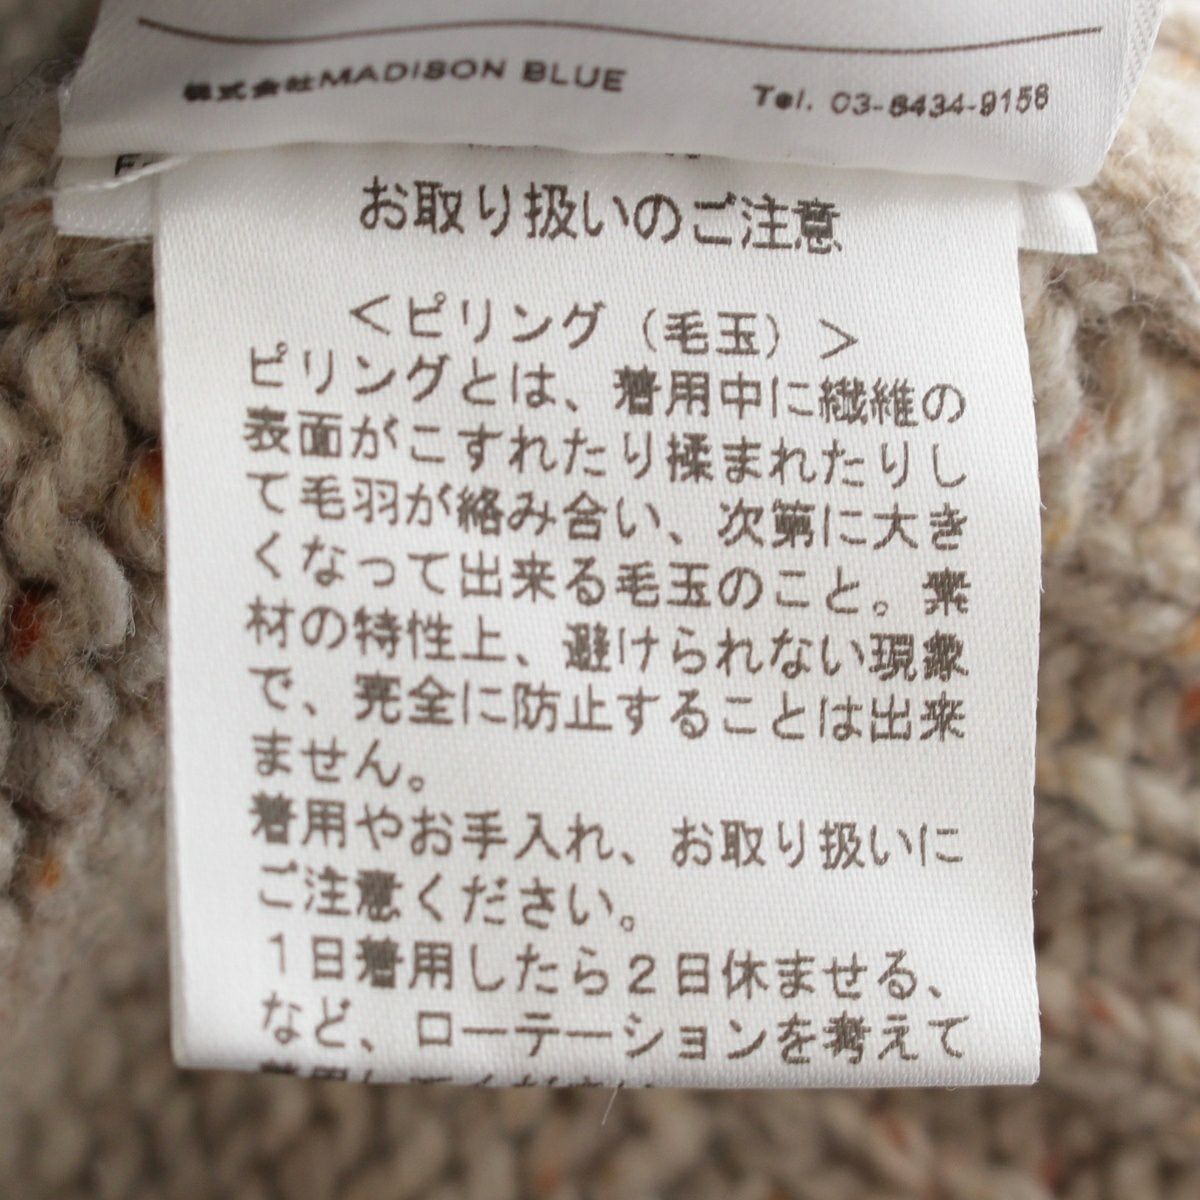 株式会社MADISON BLUE Tel. 03-6434-9156
お取り扱いのご注意
＜ピリング（毛玉）＞
ピリングとは、着用中に繊維の
表面がこすれたり揉まれたりし
て毛羽が絡み合い、次第に大き
くなって出来る毛玉のこと。素
材の特性上、避けられない現象
で、完全に防止することは出来
ません。
着用やお手入れ、お取り扱いに
ご注意ください。
1日着用したら2日休ませる、
など、ローテーションを考えて
着用してください。